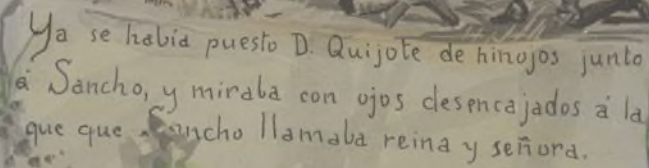 Ya se había puesto D. Quijote de hinojos junto
á Sancho, y miraba con ojos desencajados á la
que que Sancho llamaba reina y señora.